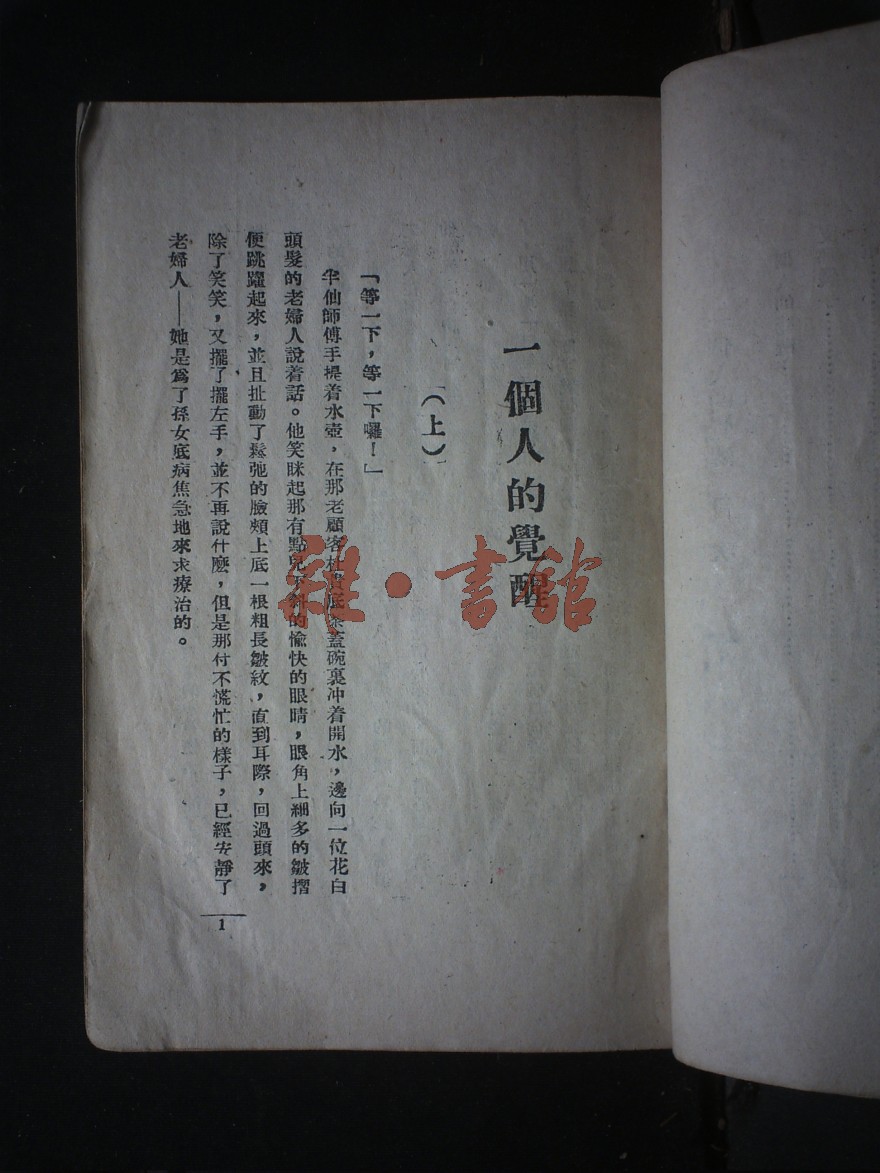 一個人的覺醒
（上）
「等一下，等一下囉！」
半仙師傅手提着水壺，在那老顧客杜貴底茶蓋碗裏冲着開水，邊向一位花白
頭髮的老婦人說着話。他笑眯起那有點兒下斜的愉快的眼睛，眼角上細多的皺摺
便跳躍起來，並且扯動了鬆弛的臉頰上底一根粗長皺紋，直到耳際，回過頭來，
除了笑笑，又擺了擺左手，並不再說什麽，但是那付不慌忙的樣子，已經安靜了
老婦人——她是爲了孫女底病焦急地來求療治的。
1
雜·書館